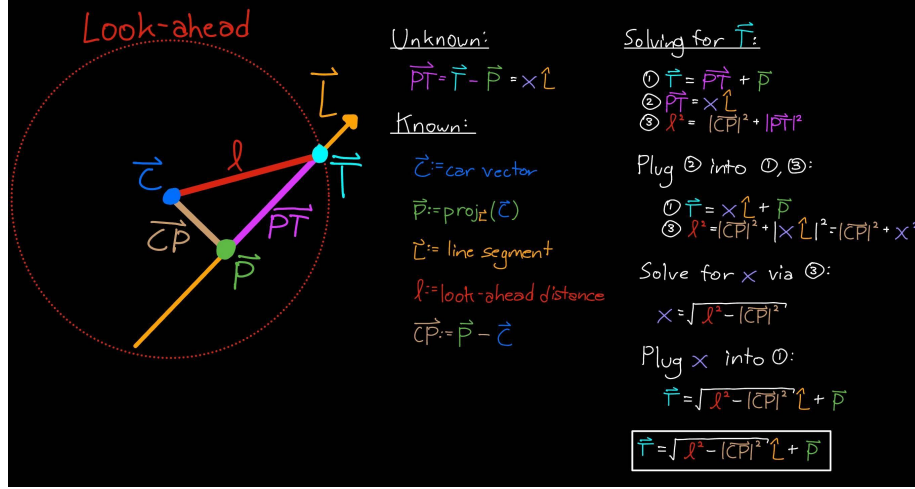 Look-ahead
L⃗
C⃗
l
T⃗
CP⃗
PT⃗
P⃗
Unknown:
PT⃗ = T⃗ - P⃗ = x L̂
Known:
C⃗ := car vector
P⃗ := proj_L⃗ (C⃗)
L⃗ := line segment
l := look-ahead distance
CP⃗ := P⃗ - C⃗
Solving for T⃗:
① T⃗ = PT⃗ + P⃗
② PT⃗ = x L̂
③ l² = |CP⃗|² + |PT⃗|²
Plug ② into ①, ③:
① T⃗ = x L̂ + P⃗
③ l² = |CP⃗|² + |x L̂|² = |CP⃗|² + x²
Solve for x via ③:
x = √(l² - |CP⃗|²)
Plug x into ①:
T⃗ = √(l² - |CP⃗|²) L̂ + P⃗
T⃗ = √(l² - |CP⃗|²) L̂ + P⃗